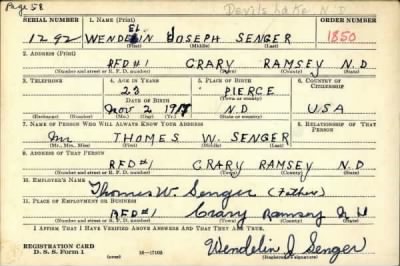 Page 58
Devils Lake, N D
SERIAL NUMBER 1. NAME (Print) ORDER NUMBER
1292 WENDELIN JOSEPH SENGER 1850
(First) (Middle) (Last)
2. ADDRESS (Print)
RFD#1 CRARY RAMSEY N.D
(Number and street or R. F. D. number) (Town) (County) (State)
3. TELEPHONE 4. AGE IN YEARS 5. PLACE OF BIRTH 6. COUNTRY OF CITIZENSHIP
23 PIERCE
DATE OF BIRTH (Town or county)
Nov 2 1917 N.D USA
(Exchange) (Number) (Mo.) (Day) (Yr.) (State or country)
7. NAME OF PERSON WHO WILL ALWAYS KNOW YOUR ADDRESS 8. RELATIONSHIP OF THAT PERSON
Mr THOMES W. SENGER
(Mr., Mrs., Miss) (First) (Middle) (Last)
9. ADDRESS OF THAT PERSON
RFD#1 CRARY RAMSEY N.D
(Number and street or R. F. D. number) (Town) (County) (State)
10. EMPLOYER'S NAME
Thomes W. Senger (Father)
11. PLACE OF EMPLOYMENT OR BUSINESS
RFD#1 Crary Ramsey N D
(Number and street or R. F. D. number) (Town) (County) (State)
I AFFIRM THAT I HAVE VERIFIED ABOVE ANSWERS AND THAT THEY ARE TRUE.
REGISTRATION CARD
D. S. S. Form 1 16—17105 Wendelin J Senger
(Registrant's signature)